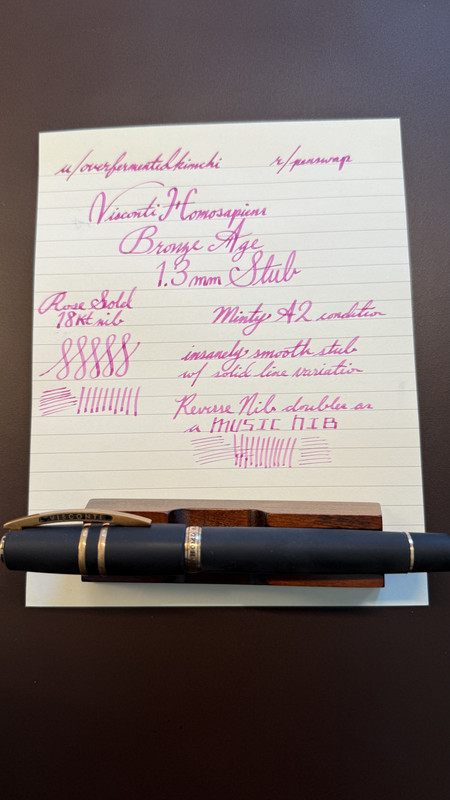 u/overfermentedkimchi r/penswap
Visconti Homosapiens
Bronze Age
1.3mm Stub
Rose Gold
18kt nib
Minty A2 condition
insanely smooth stub
w/ solid line variation
Reverse Nib doubles as
a MUSIC NIB
VISCONTI